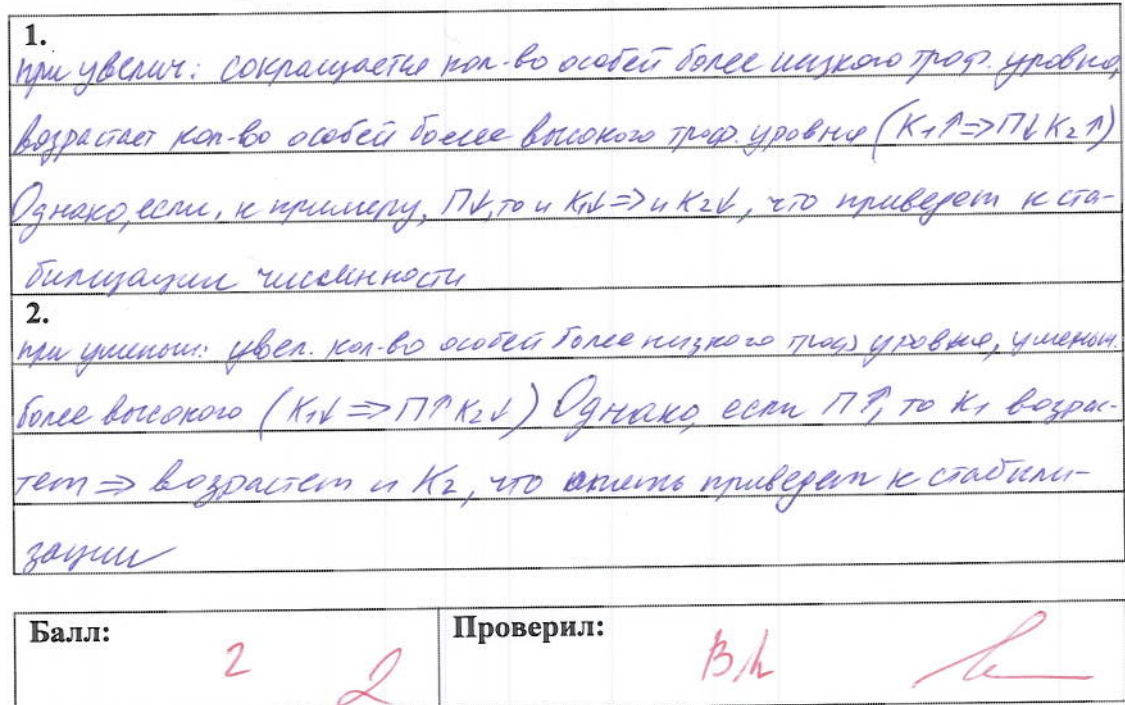 1.
при увелич: сокращается кол-во особей более низкого троф. уровня,
возрастает кол-во особей более высокого троф. уровня (К₁↑ => П↓ К₂↑)
Однако, если, к примеру, П↓, то и К₁↓ => и К₂↓, что приведет к ста-
билизации численности
2.
при уменьш: увел. кол-во особей более низкого троф уровня, уменьш.
более высокого (К₁↓ => П↑ К₂↓) Однако, если П↑, то К₁ возрас-
тет => возрастет и К₂, что опять приведет к стабили-
зации
Балл: 2 2 Проверил: